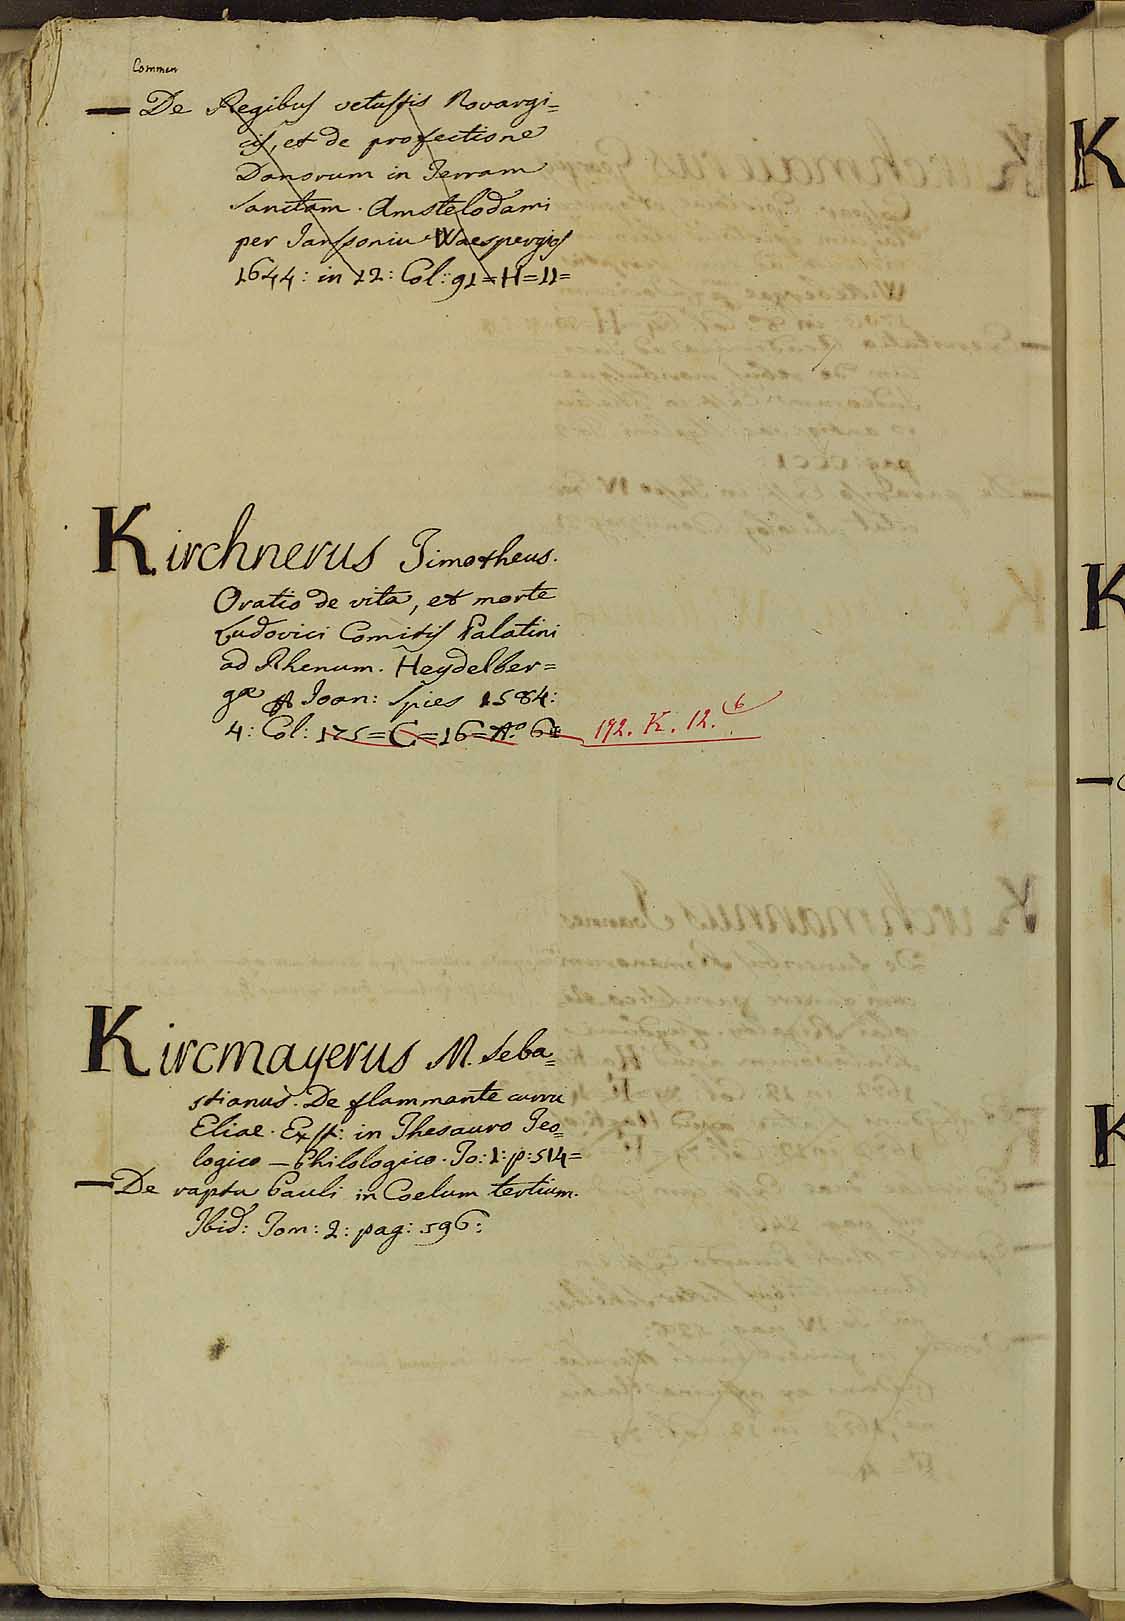 Commen
— De Regibus vetustis Norvagi=
cis, et de profectione
Danorum in Terram
sanctam. Amstelodami
per Janssoniu Waespergios
1644: in 12: Col: 91=H=11=
Kirchnerus Timotheus.
Oratio de vita, et morte
Ludovici Comitis Palatini
ad Rhenum. Heydelber=
gæ Joan: Spies 1584:
4: Col: 175=C=16=A.o 6= 192. K. 12. (6
Kircmayerus M. Seba=
stianus. De flammante curru
Eliae. Exst: in Thesauro Teo=
logico — Philologico. To: 1: p: 514=
— De raptu Pauli in Coelum tertium.
Ibid: Tom: 2: pag: 596:
K
K
—
K